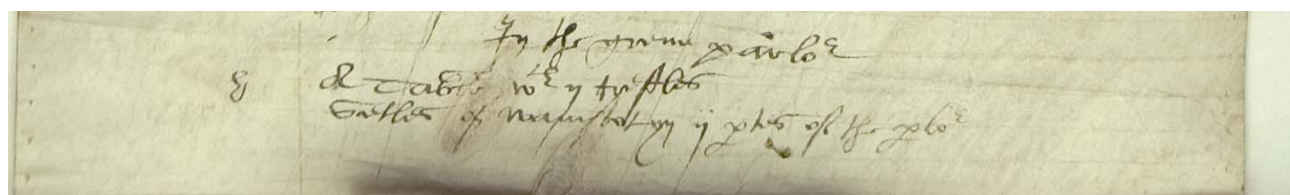 In the grene parlor
A Table wt ij trestles
Setles of waynscot yn ij ptes of the plor